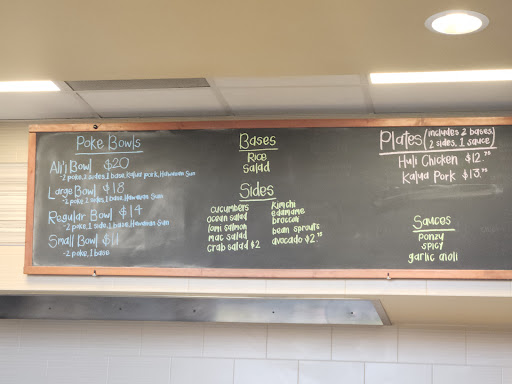 Poke Bowls
Ali'i Bowl $20
-2 poke, 2 sides, 1 base, Kalua pork, Hawaiian Sun
Large Bowl $18
-2 poke, 2 sides, 1 base, Hawaiian Sun
Regular Bowl $14
-2 poke, 1 side, 1 base, Hawaiian Sun
Small Bowl $11
-2 poke, 1 base
Bases
Rice
Salad
Sides
cucumbers
ocean salad
lomi salmon
mac salad
crab salad $2
kimchi
edamame
broccoli
bean sprouts
avocado $2.
Plates (includes 2 bases,
2 sides, 1 sauce)
Huli Chicken $12.
Kalua Pork $13.
Sauces
ponzu
spicy
garlic aioli